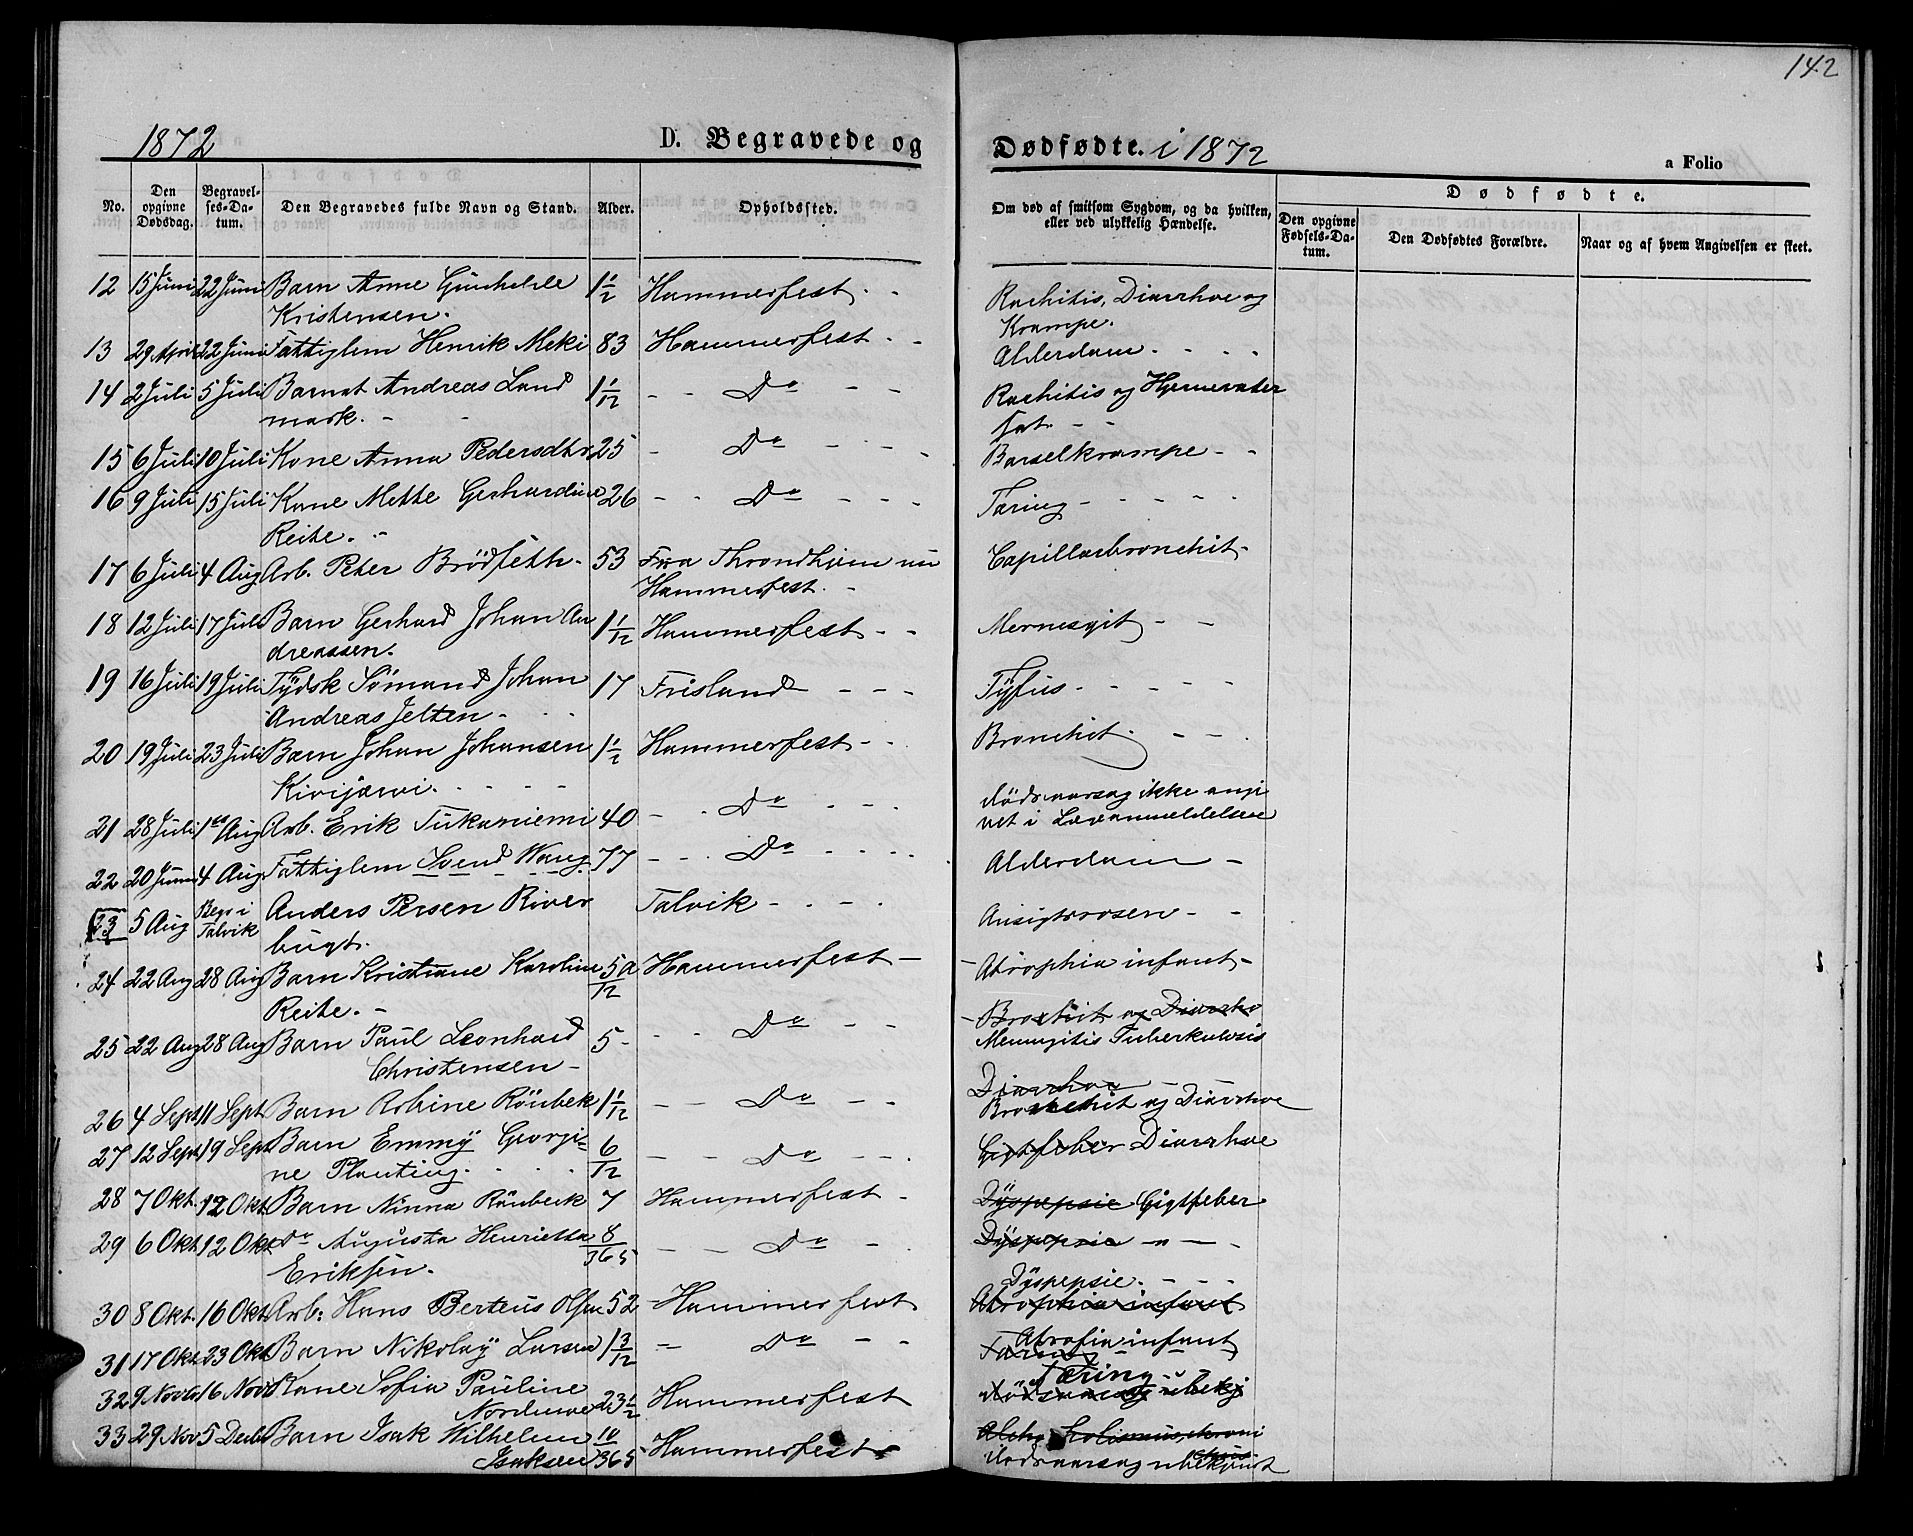 142
1872
D. Begravede og Dødfødte. i 1872
a Folio
No.
Den opgivne Dødsdag.
Begravelses-Datum.
Den Begravedes fulde Navn og Stand.
Alder.
Opholdssted.
Om død af smitsom Sygdom, og da hvilken, eller ved ulykkelig Hændelse.
Dødfødte.
Den opgivne Fødsels-Datum.
Den Dødfødtes Forældre.
Naar og af hvem Angivelsen er skeet.
12 15 Juni 22 Juni Barn Anne 1 1/2 Hammerfest - - Rachitis, Diarrhoe og
Kristensen. Krampe.
13 29 April 22 Juni Fattiglem Henrik Meki 83 Hammerfest - - Alderdom - - - -
14 2 Juli 5 Juli Barnet Andreas Land 1 1/12 - - Do - - Rachitis og
mark. - -
15 6 Juli 10 Juli Kone Anna Pedersdtr 25 - Do - - - Barselkrampe - -
16 9 Juli 15 Juli Kone Mette Gerhardine 26 - - Do - - - Tæring - - - - -
Reite. -
17 6 Juli 4 Aug Arb. Peter Brödseth - 53 Fra Throndhjem nu Capillærbronchit -
Hammerfest. -
18 12 Juli 17 Juli Barn Gerhard Johan An 1 1/12 Hammerfest - - - -
dreassen.
19 16 Juli 19 Juli Tydsk Sömand Johan 17 Frisland - - - Tyfus - - - - -
Andreas Jelten - - -
20 19 Juli 23 Juli Barn Johan Johansen 1 1/2 Hammerfest - - Bronchit. - - -
Kivijærvi. - - - -
21 28 Juli 1 Aug Arb. Erik Tukaniemi 40 - - Do - - - Dödsaarsag ikke angi
vet i
22 20 Juni 4 Aug Fattiglem Svend Wang 77 - - - Do - - - - Alderdom -
23 5 Aug Begr i Talvik Anders Persen River Talvik - - - - Ansigtsrosen - -
bugt.
24 22 Aug 28 Aug Barn Kristiane Karoline 5/12 Hammerfest - - Atrophia infant -
Reite. -
25 22 Aug 28 Aug Barn Paul Leonhard 5 - - - Do - - - Bronchit og Diarrho
Christensen - Meningitis Tuberkulosis
26 4 Sept 11 Sept Barn Robine Rönbek 1 1/12 - - Do - - Diarrhoe -
Bronchit og Diarrhoe
27 12 Sept 19 Sept Barn Emmy Georgi- 6/12 - - Do - - - Gigtfeber Diarrhoe
ne Planting. - - -
28 7 Okt. 12 Okt Barn Ninna Rönbeck 7 Hammerfest - Dyspepsie Gigtfeber
29 6 Okt 12 Okt Do Augusta Henrietta 8/365 - - Do - Dyspepsie - " - -
Eriksen. Dyspepsie. - - -
30 8 Okt. 16 Okt Arb. Hans Berteus Olsen 52 - Hammerfest Atrophia infant
31 17 Okt 23 Okt Barn Nikolay Larsen 1 3/12 - Do - - Atrofia infant
Tæring
32 9 Novb 16 Novb Kone Sofia Pauline 23 1/2 Hammerfest Tæring -
Dödsaarsag ubekj
33 29 Nov 5 Decbr Barn Isak Wilhelm 10/365 Hammerfest
Isaksen Dödsaarsag ubekjendt